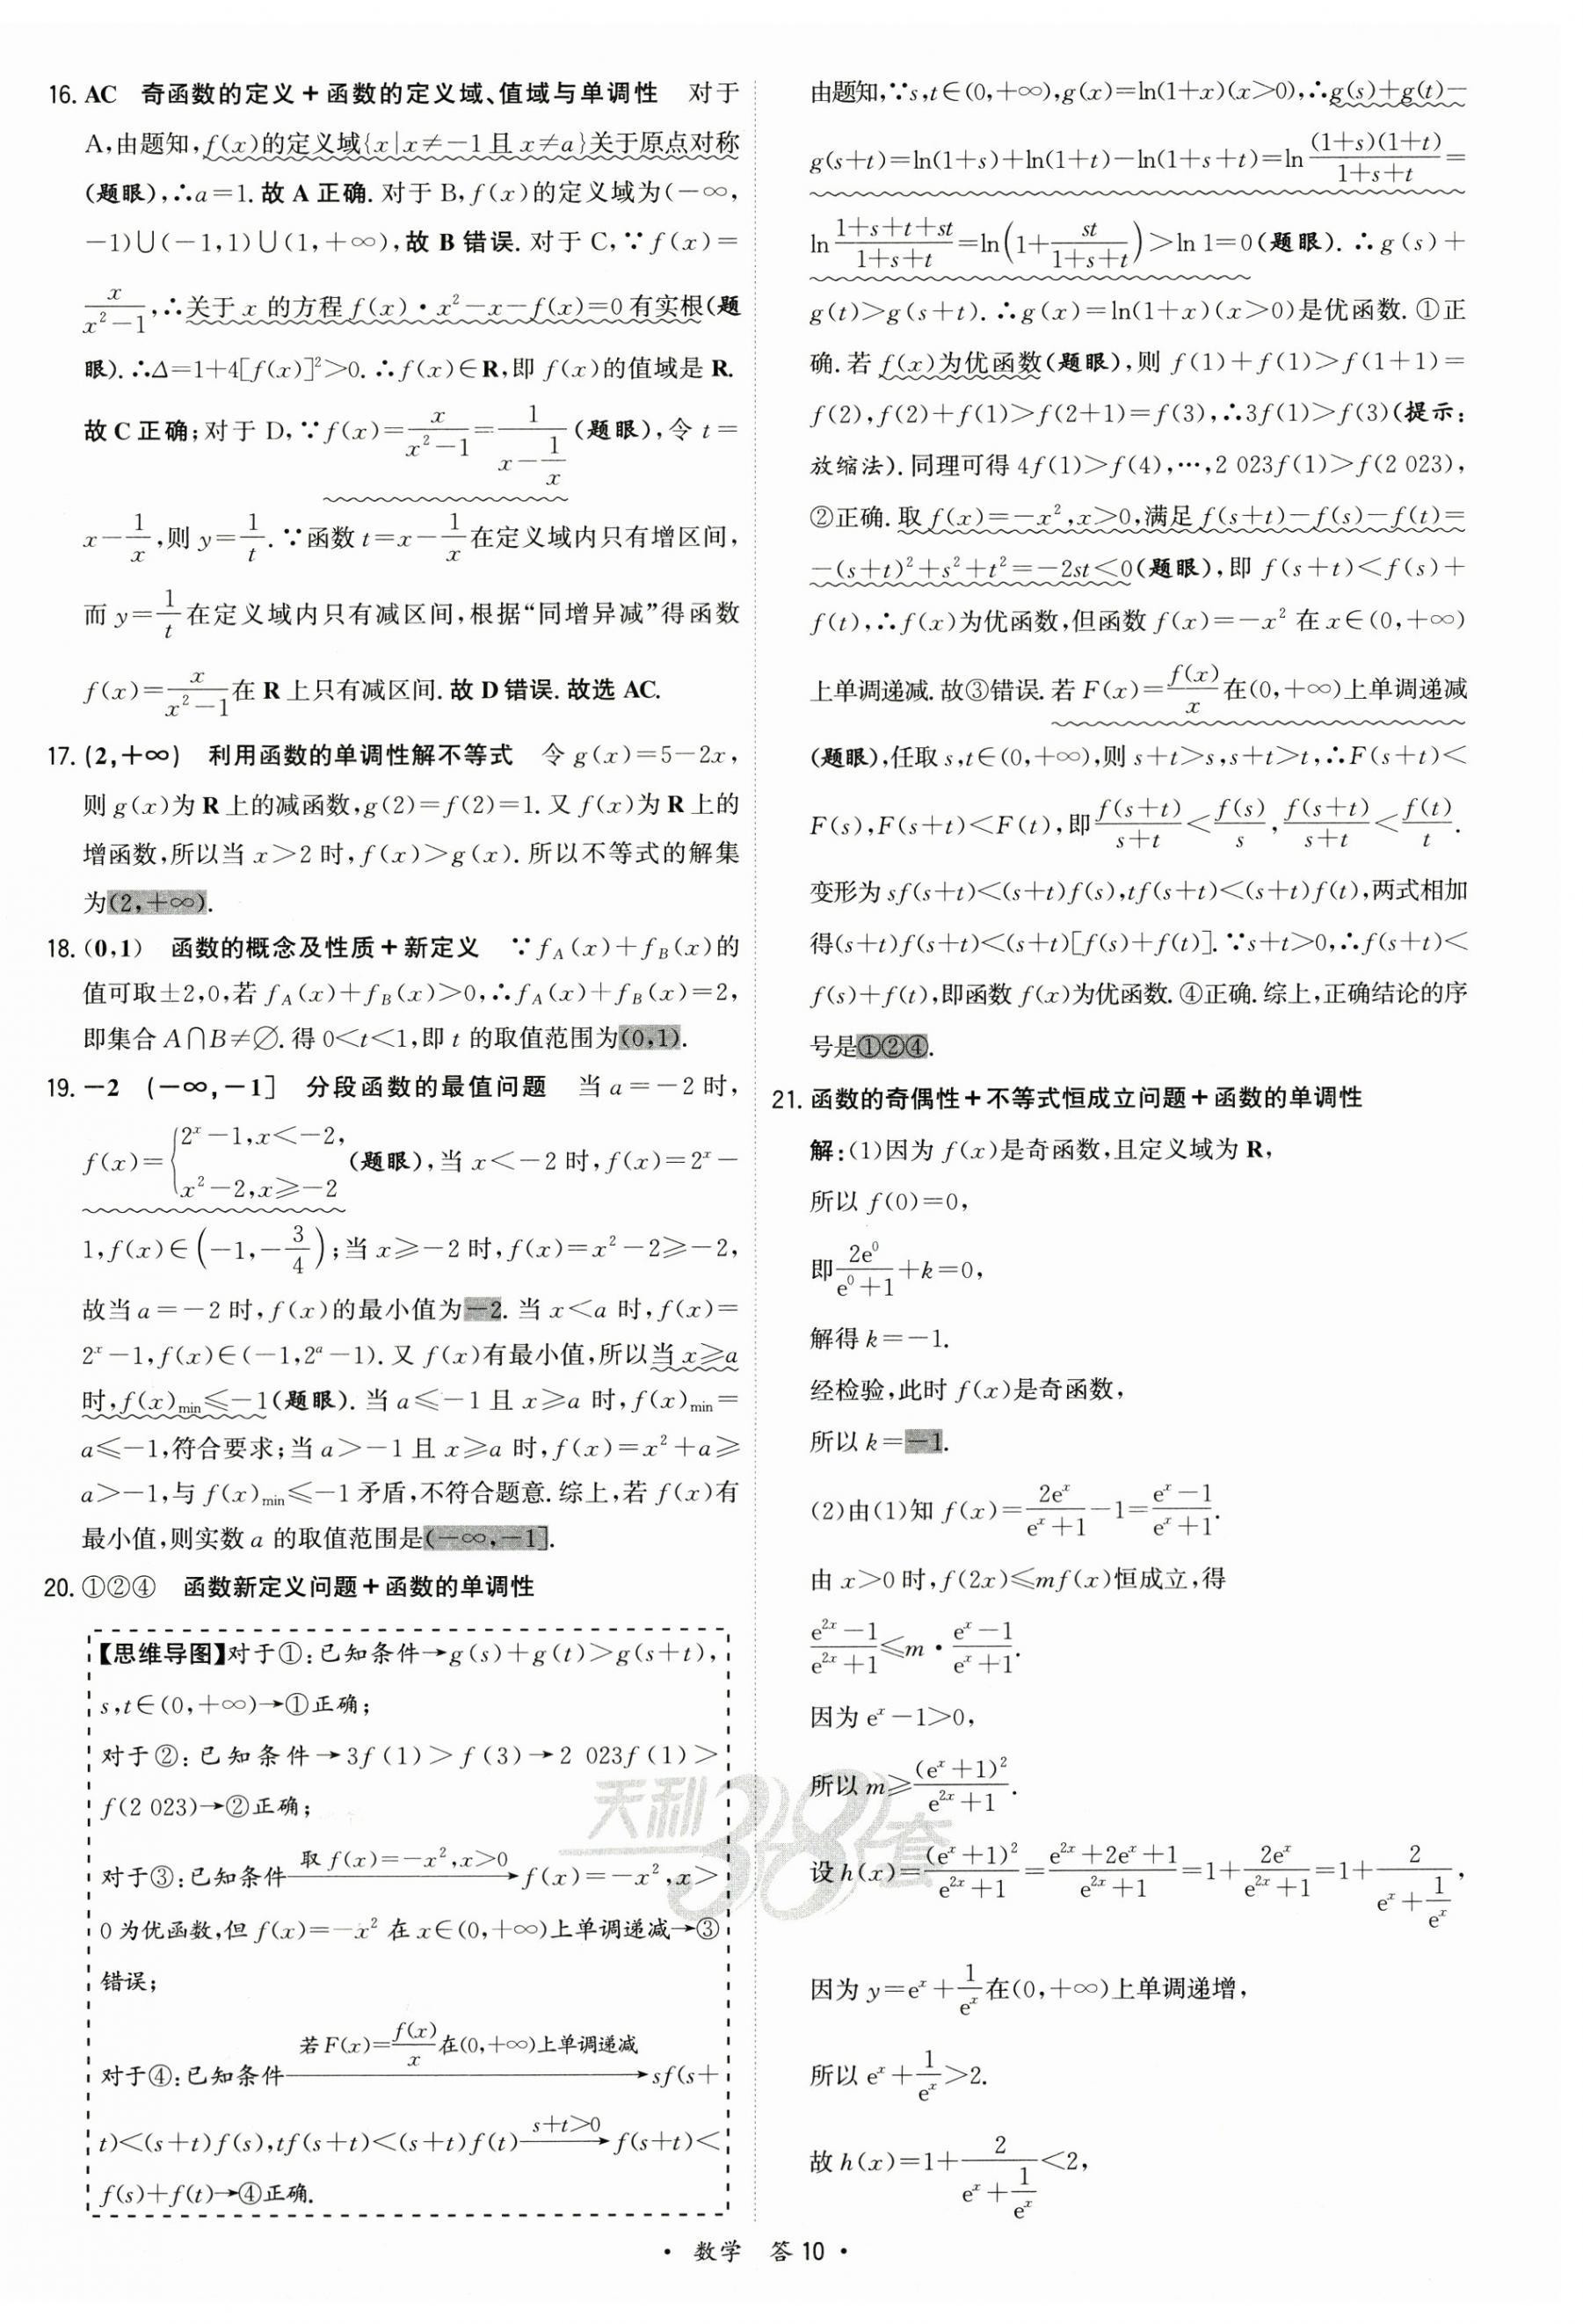 16. AC 奇函数的定义＋函数的定义域、值域与单调性 对于
A,由题知,f(x)的定义域{x|x≠－1且x≠a}关于原点对称
(题眼),∴a＝1.故A正确.对于B,f(x)的定义域为(－∞,
－1)∪(－1,1)∪(1,＋∞),故B错误.对于C,∵f(x)＝
x/(x²－1),∴关于x的方程f(x)·x²－x－f(x)＝0有实根(题
眼).∴Δ＝1＋4[f(x)]²>0.∴f(x)∈R,即f(x)的值域是R.
故C正确;对于D,∵f(x)＝x/(x²－1)＝1/(x－1/x)(题眼),令t＝
x－1/x,则y＝1/t.∵函数t＝x－1/x在定义域内只有增区间,
而y＝1/t在定义域内只有减区间,根据“同增异减”得函数
f(x)＝x/(x²－1)在R上只有减区间.故D错误.故选AC.
17. (2,＋∞) 利用函数的单调性解不等式 令g(x)＝5－2x,
则g(x)为R上的减函数,g(2)＝f(2)＝1.又f(x)为R上的
增函数,所以当x>2时,f(x)>g(x).所以不等式的解集
为(2,＋∞).
18. (0,1) 函数的概念及性质＋新定义 ∵f_A(x)＋f_B(x)的
值可取±2,0,若f_A(x)＋f_B(x)>0,∴f_A(x)＋f_B(x)＝2,
即集合A∩B≠∅.得0<t<1,即t的取值范围为(0,1).
19. －2 (－∞,－1] 分段函数的最值问题 当a＝－2时,
f(x)＝{2^x－1,x<－2, x²－2,x≥－2 (题眼),当x<－2时,f(x)＝2^x－
1,f(x)∈(－1,－3/4);当x≥－2时,f(x)＝x²－2≥－2,
故当a＝－2时,f(x)的最小值为－2.当x<a时,f(x)＝
2^x－1,f(x)∈(－1,2^a－1).又f(x)有最小值,所以当x≥a
时,f(x)min≤－1(题眼).当a≤－1且x≥a时,f(x)min＝
a≤－1,符合要求;当a>－1且x≥a时,f(x)＝x²＋a≥
a>－1,与f(x)min≤－1矛盾,不符合题意.综上,若f(x)有
最小值,则实数a的取值范围是(－∞,－1].
20. ①②④ 函数新定义问题＋函数的单调性
【思维导图】对于①:已知条件→g(s)＋g(t)>g(s＋t),
s,t∈(0,＋∞)→①正确;
对于②:已知条件→3f(1)>f(3)→2 023f(1)>
f(2 023)→②正确;
取f(x)＝－x²,x>0
对于③:已知条件→f(x)＝－x²,x>
0为优函数,但f(x)＝－x²在x∈(0,＋∞)上单调递减→③
错误;
若F(x)＝f(x)/x在(0,＋∞)上单调递减
对于④:已知条件→sf(s＋
s＋t>0
t)<(s＋t)f(s),tf(s＋t)<(s＋t)f(t)→f(s＋t)<
f(s)＋f(t)→④正确.
由题知,∵s,t∈(0,＋∞),g(x)＝ln(1＋x)(x>0),∴g(s)＋g(t)－
g(s＋t)＝ln(1＋s)＋ln(1＋t)－ln(1＋s＋t)＝ln (1＋s)(1＋t)/(1＋s＋t)＝
ln (1＋s＋t＋st)/(1＋s＋t)＝ln(1＋st/(1＋s＋t))>ln 1＝0(题眼).∴g(s)＋
g(t)>g(s＋t).∴g(x)＝ln(1＋x)(x>0)是优函数.①正
确.若f(x)为优函数(题眼),则f(1)＋f(1)>f(1＋1)＝
f(2),f(2)＋f(1)>f(2＋1)＝f(3),∴3f(1)>f(3)(提示:
放缩法).同理可得4f(1)>f(4),…,2 023f(1)>f(2 023),
②正确.取f(x)＝－x²,x>0,满足f(s＋t)－f(s)－f(t)＝
－(s＋t)²＋s²＋t²＝－2st<0(题眼),即f(s＋t)<f(s)＋
f(t),∴f(x)为优函数,但函数f(x)＝－x²在x∈(0,＋∞)
上单调递减.故③错误.若F(x)＝f(x)/x在(0,＋∞)上单调递减
(题眼),任取s,t∈(0,＋∞),则s＋t>s,s＋t>t,∴F(s＋t)<
F(s),F(s＋t)<F(t),即f(s＋t)/(s＋t)<f(s)/s,f(s＋t)/(s＋t)<f(t)/t.
变形为sf(s＋t)<(s＋t)f(s),tf(s＋t)<(s＋t)f(t),两式相加
得(s＋t)f(s＋t)<(s＋t)[f(s)＋f(t)].∵s＋t>0,∴f(s＋t)<
f(s)＋f(t),即函数f(x)为优函数.④正确.综上,正确结论的序
号是①②④.
21. 函数的奇偶性＋不等式恒成立问题＋函数的单调性
解:(1)因为f(x)是奇函数,且定义域为R,
所以f(0)＝0,
即2e⁰/(e⁰＋1)＋k＝0,
解得k＝－1.
经检验,此时f(x)是奇函数,
所以k＝－1.
(2)由(1)知f(x)＝2e^x/(e^x＋1)－1＝(e^x－1)/(e^x＋1).
由x>0时,f(2x)≤mf(x)恒成立,得
(e^2x－1)/(e^2x＋1)≤m·(e^x－1)/(e^x＋1).
因为e^x－1>0,
所以m≥(e^x＋1)²/(e^2x＋1).
设h(x)＝(e^x＋1)²/(e^2x＋1)＝(e^2x＋2e^x＋1)/(e^2x＋1)＝1＋2e^x/(e^2x＋1)＝1＋2/(e^x＋1/e^x),
因为y＝e^x＋1/e^x在(0,＋∞)上单调递增,
所以e^x＋1/e^x>2.
故h(x)＝1＋2/(e^x＋1/e^x)<2,
天利38套
· 数学 答10 ·